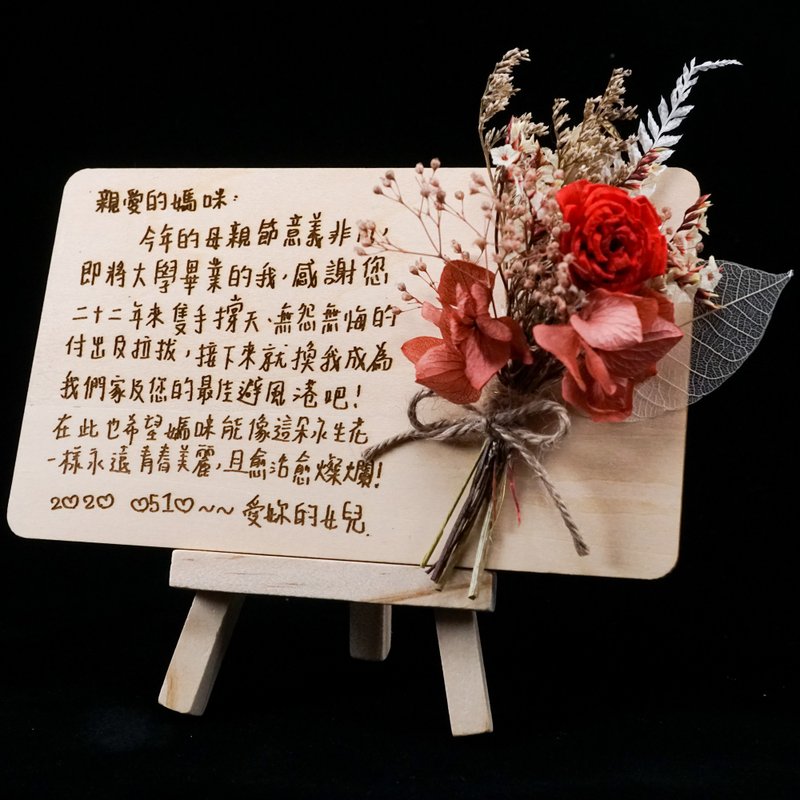 親愛的媽咪：
今年的母親節意義非凡，
即將大學畢業的我，感謝您
二十二年來隻手撐天、無怨無悔的
付出及拉拔，接下來就換我成為
我們家及您的最佳避風港吧！
在此也希望媽咪能像這朵永生花
一樣永遠青春美麗，且愈活愈燦爛！
2♡2♡ ♡51♡~~愛妳的女兒.